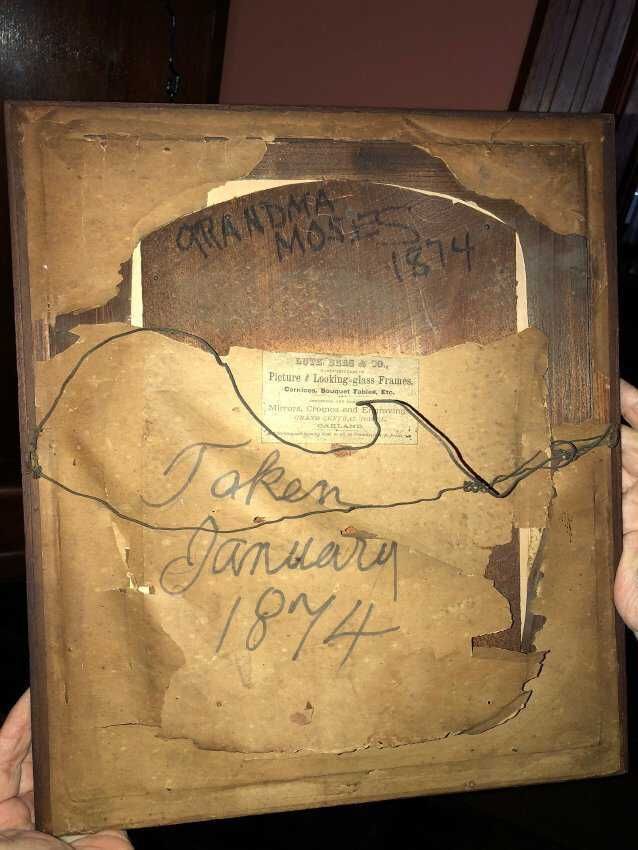 GRANDMA
MOSES
1874
& CO.,
Picture & Looking-glass Frames,
Cornices, Bouquet Tables, Etc.
Mirrors, Cromos and Engraving
GRAND CENTRAL HOTEL,
OAKLAND.
Taken
January
1874